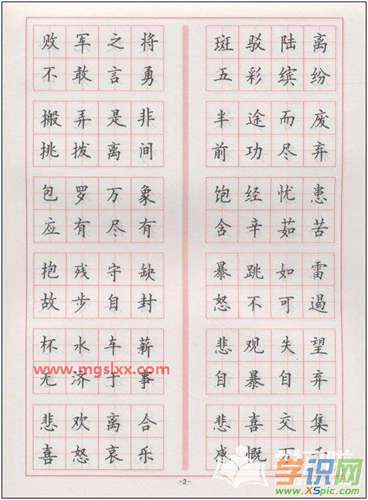 败军之将
不敢言勇
搬弄是非
挑拨离间
包罗万象
应有尽有
抱残守缺
故步自封
杯水车薪
www.mgslxx.com
无济于事
悲欢离合
喜怒哀乐
斑驳陆离
五彩缤纷
半途而废
前功尽弃
饱经忧患
含辛茹苦
暴跳如雷
怒不可遏
悲观失望
自暴自弃
悲喜交集
感慨万
-2-
学识网
XSpic.com